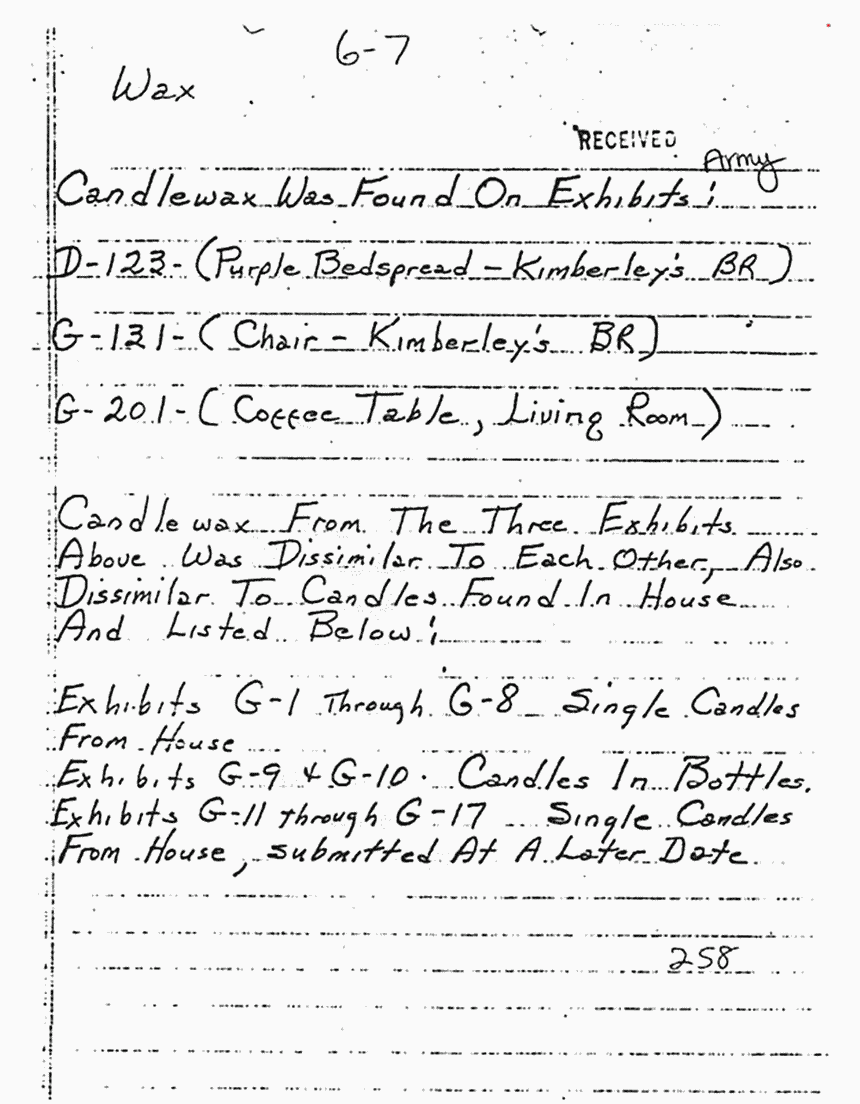 6-7
Wax
RECEIVED
Army
Candlewax Was Found On Exhibits:
D-123-(Purple Bedspread-Kimberley's BR)
G-131-(Chair-Kimberley's BR)
G-201-(Coffee Table, Living Room)
Candle wax From The Three Exhibits
Above Was Dissimilar To Each Other, Also
Dissimilar To Candles Found In House
And Listed Below:
Exhibits G-1 Through G-8 Single Candles
From House
Exhibits G-9 & G-10. Candles In Bottles.
Exhibits G-11 through G-17 Single Candles
From House, submitted At A Later Date.
258